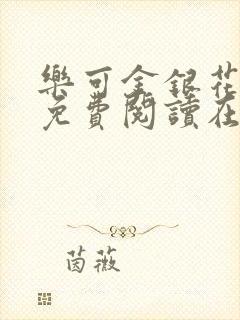 樂可金銀花
免費閱讀在
茵薇